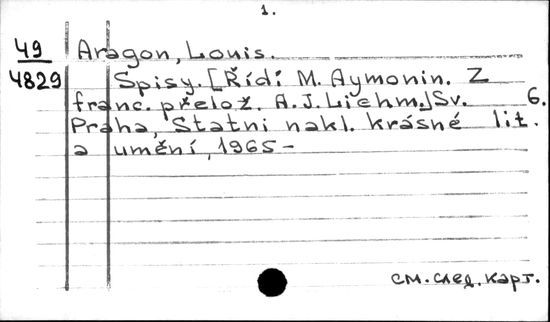 1.
49 Aragon, Louis.
4829 Spisy. [Řídí M. Aymonin. Z
franc. přelož. A.J. Liehm.] Sv. 6.
Praha, Statni nakl. krásné lit.
a umění, 1965 –
см. след. карт.